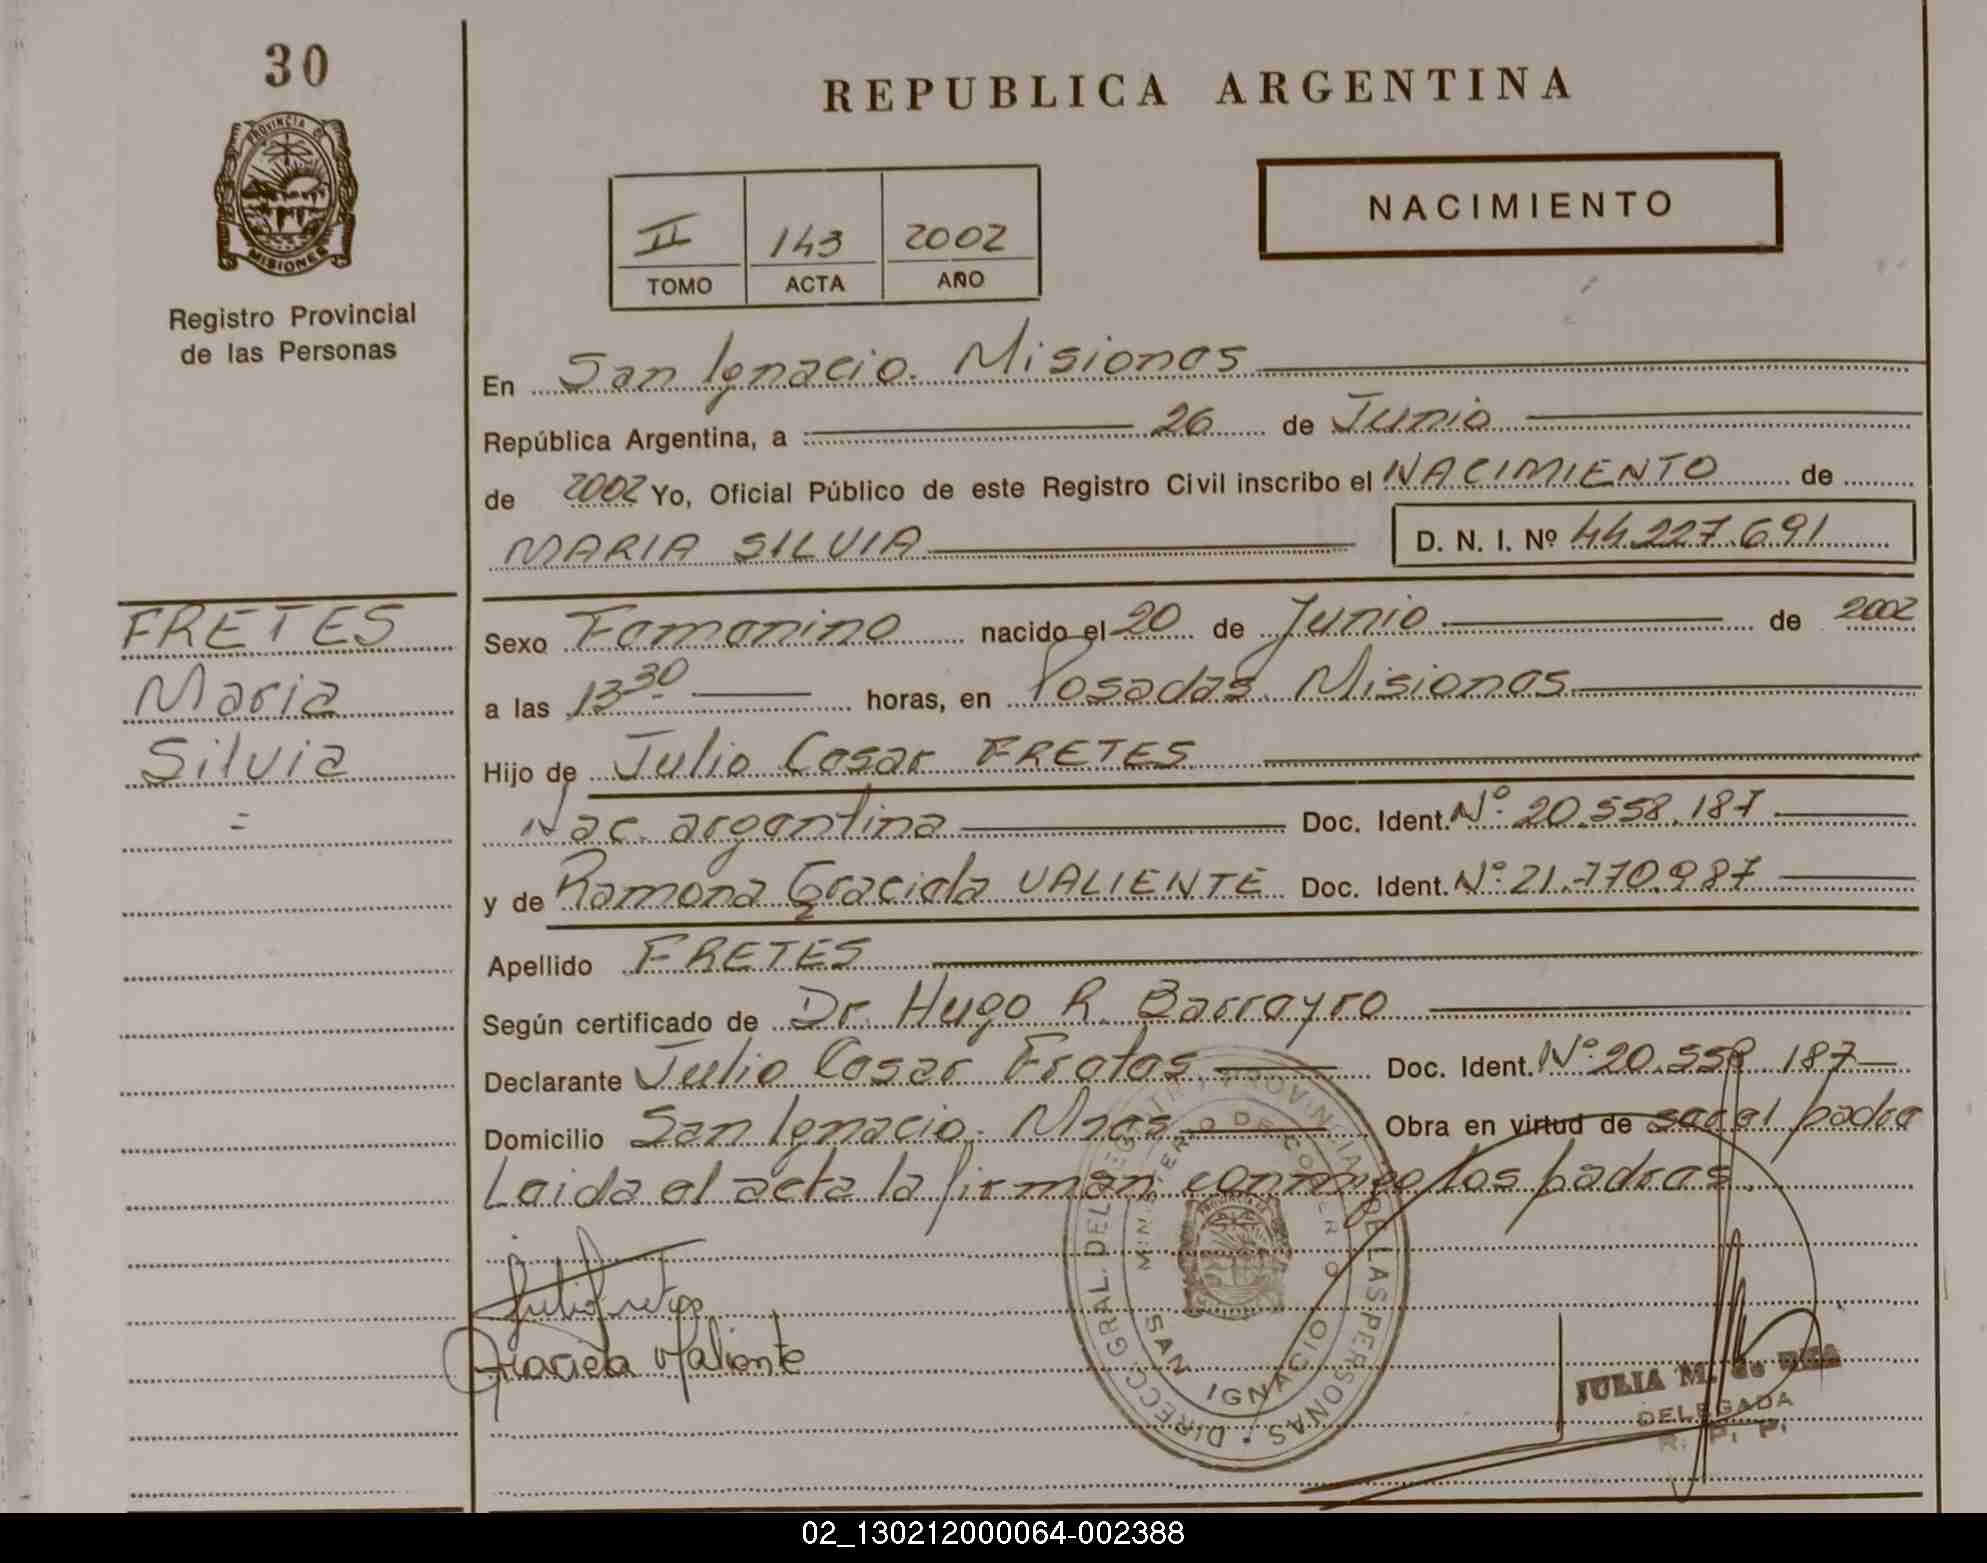 30
PROVINCIA DE
MISIONES
Registro Provincial
de las Personas
REPUBLICA ARGENTINA
II 143 2002
TOMO ACTA AÑO
NACIMIENTO
En San Ignacio. Misiones
República Argentina, a 26 de Junio
de 2002 Yo, Oficial Público de este Registro Civil inscribo el NACIMIENTO de
MARIA SILVIA D. N. I. Nº 44.227.691
FRETES
Maria
Silvia
=
Sexo Femenino nacido el 20 de Junio de 2002
a las 13 30 horas, en Posadas. Misiones
Hijo de Julio Cesar FRETES
Nac. argentina Doc. Ident. Nº 20.558.187
y de Ramona Graciela VALIENTE Doc. Ident. Nº 21.770.987
Apellido FRETES
Según certificado de Dr. Hugo R. Barreyro
Declarante Julio Cesar Fretes Doc. Ident. Nº 20.558.187
Domicilio San Ignacio. Mnes Obra en virtud de ser el padre
Leida el acta la firman conmigo los padres.
Julio Fretes
Graciela Valiente
DIRECC. GRAL. DEL REGISTRO PROVINCIAL DE LAS PERSONAS
MINISTERIO DE GOBIERNO
SAN IGNACIO
JULIA M. de
DELEGADA
R. P. P.
02_130212000064-002388